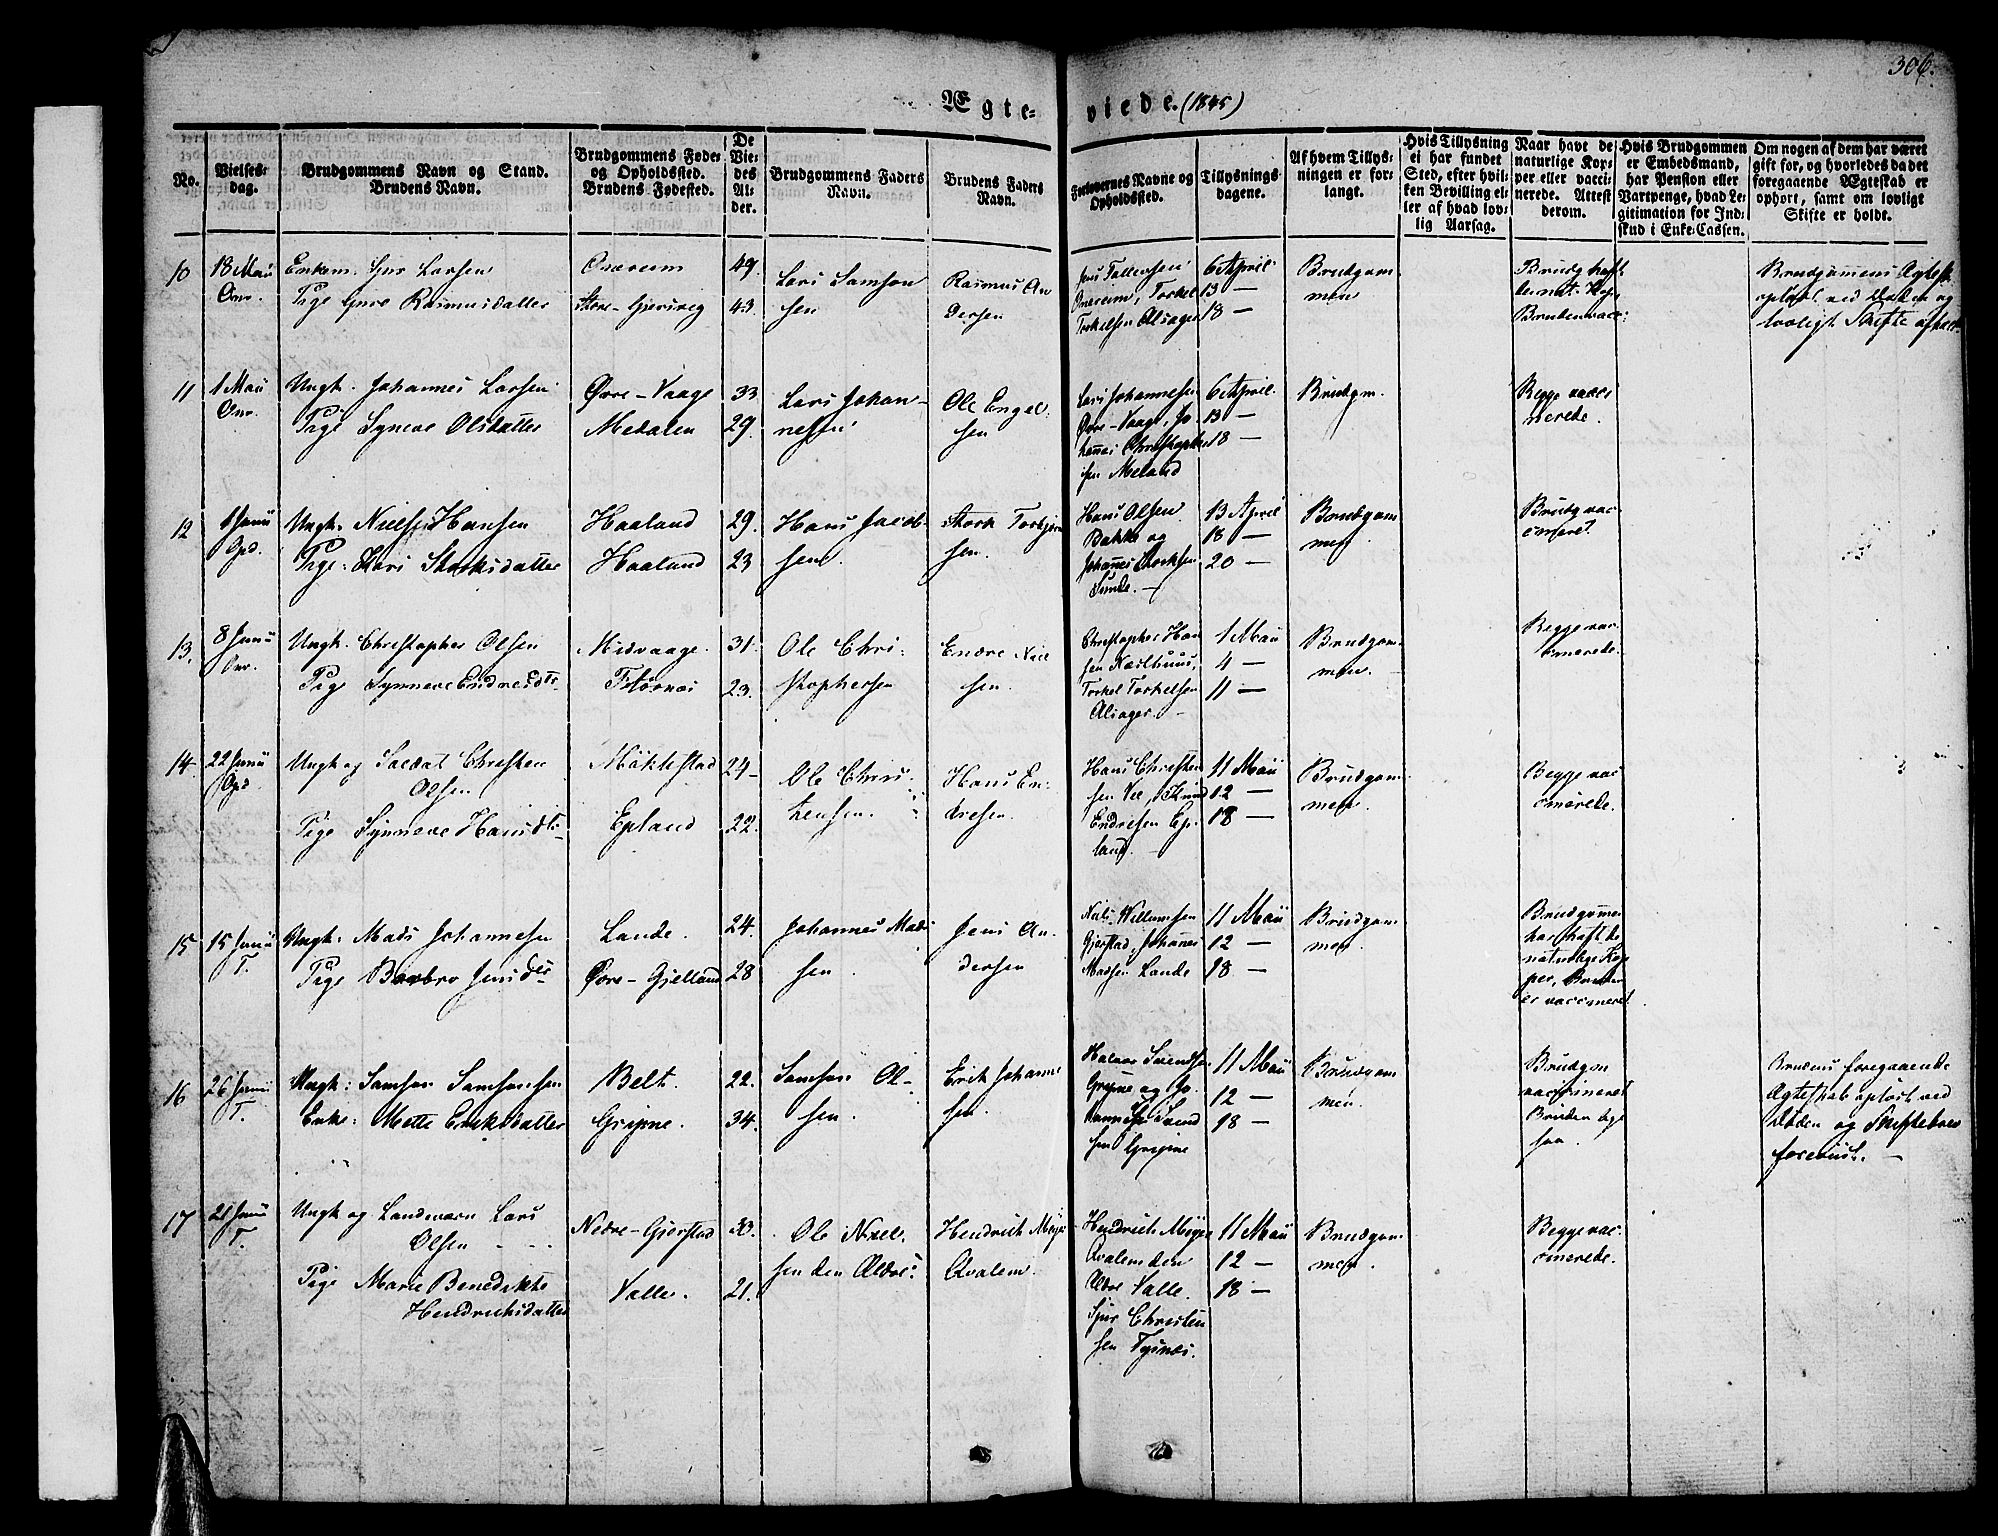 306.
Ægte-
viede. (1845)
No.
Vielses-
dag.
Brudgommens Navn og Stand.
Brudens Navn.
Brudgommens Føde-
og Opholdssted.
Brudens Fødested.
De
Vie-
des
Al-
der.
Brudgommens Faders
Navn.
Brudens Faders
Navn.
Forlovernes Navne og
Opholdssted.
Tillysnings-
dagene.
Af hvem Tillys-
ningen er for-
langt.
Hvis Tillysning
ei har fundet
Sted, efter hvil-
ken Bevilling el-
ler af hvad lov-
lig Aarsag.
Naar havt de
naturlige Kop-
per eller vacci-
nerede. Attest
derom.
Hvis Brudgommen
er Embedsmand,
har Pension eller
Vartpenge, hvad Le-
gitimation for Ind-
skud i Enke-Cassen.
Om nogen af dem har været
gift før, og hvorledes da det
foregaaende Ægteskab er
ophørt, samt om lovligt
Skifte er holdt.
10
18 Maii
Onr.
Enkem. Sjur Larsen
Pige Guro Rasmusdatter
Onarem
Store-Gjerivig
49.
43.
Lars Samson
sen
Rasmus An
dersen
Onarem, Torkel
Torkelsen Alsager
6 April
13 —
18 —
Brudgom
men
Brudg haft
de nat. Kop,
Bruden vacc:
Brudgomens Ægtesk
ophørt ved Døden og
lovligt Skifte afholdt
11
1 Maii
Onr.
Ungk. Johannes Larsen
Pige Syneve Olsdatter
Øvre-Vaage
Medalen
33
29.
Lars Johan-
nesen
Ole Engel
sen
Lars Johannesen
Øvre-Vaage, Jo
hannes Christophe
sen Meland
6 April.
13 —
18 —
Brudgm.
Begge vacci
nerede.
12
1 Junii
Opd.
Ungk. Niels Hansen
Pige. Kari Storksdatter
Haaland
Haaland
29.
23
Hans Jacob-
sen
Stork Torbjørn
sen.
Hans Olsen
Bakke og
Johannes Storksen
Sunde. —
13 April
18 —
20 —
Brudgom
men
Brudg vac
cineret
13.
8 Junii
Onr.
Ungk. Christopher Olsen
Pige Synneve Endresdtr
Midvaage.
Flornes
31.
23.
Ole Chri-
stophersen
Endre Niel
sen.
Christopher Han
sen Næsthuus,
Torkel Torkelsen
Alsager. —
1 Maii
4 —
11 —
Brudgom
men.
Begge vac
cinerede.
14.
22 Junii
Opd.
Ungk og Soldat Christen
Olsen
Pige Synneve Hansdtr
Møklestad
Epland
24
22.
Ole Chris
tensen.
Hans En-
dresen.
Hans Christen
sen Vee, Knud
Endresen Ep-
land. —
11 Maii
12 —
18 —
Brudgom
men.
Begge vac
cinerede.
15
15 Junii
T.
Ungk. Mads Johannesen
Pige Barbro Jensdtr
Lande.
Øvre-Gjelland
24.
28
Johannes Mad
sen
Jens An
dersen
Niels Willumsen
Gjerstad, Johannes
Madsen Lande
11 Maii
12 —
18 —
Brudgom
men
Brudgomen
har haft de
naturlige Kop
per, Bruden
er vaccineret
16
26 Junii
T.
Ungk: Samson Samsonsen
Enke: Mette Eriksdatter
Belt.
Gripne.
22.
34.
Samson Ol-
sen.
Erik Johanne
sen.
Halvor Svendsen
Gripne og Jo
hannes Svend
sen Gripne
11 Maii
12 —
18 —
Brudgom
men
Brudgom
vaccineret
Bruden lige
saa.
Brudens foregaaende
Ægteskab ophørt ved
Døden og Skiftebrev
foreviist. —
17
21 Junii
T.
Ungk og Landværn Lars
Olsen
Pige Marie Benedikte
Hendrichsdatter
Nedre-Gjerstad
Valle.
33.
21.
Ole Niel
sen den Ældre:
Hendrich Meyer
Qvalem.
Hendrich Meyer
Qvalem den
Ældre Valle.
Sjur Christen
sen Tysnæs.
11 Maii
12 —
18 —
Brudgom
men.
Begge vac
cinerede.